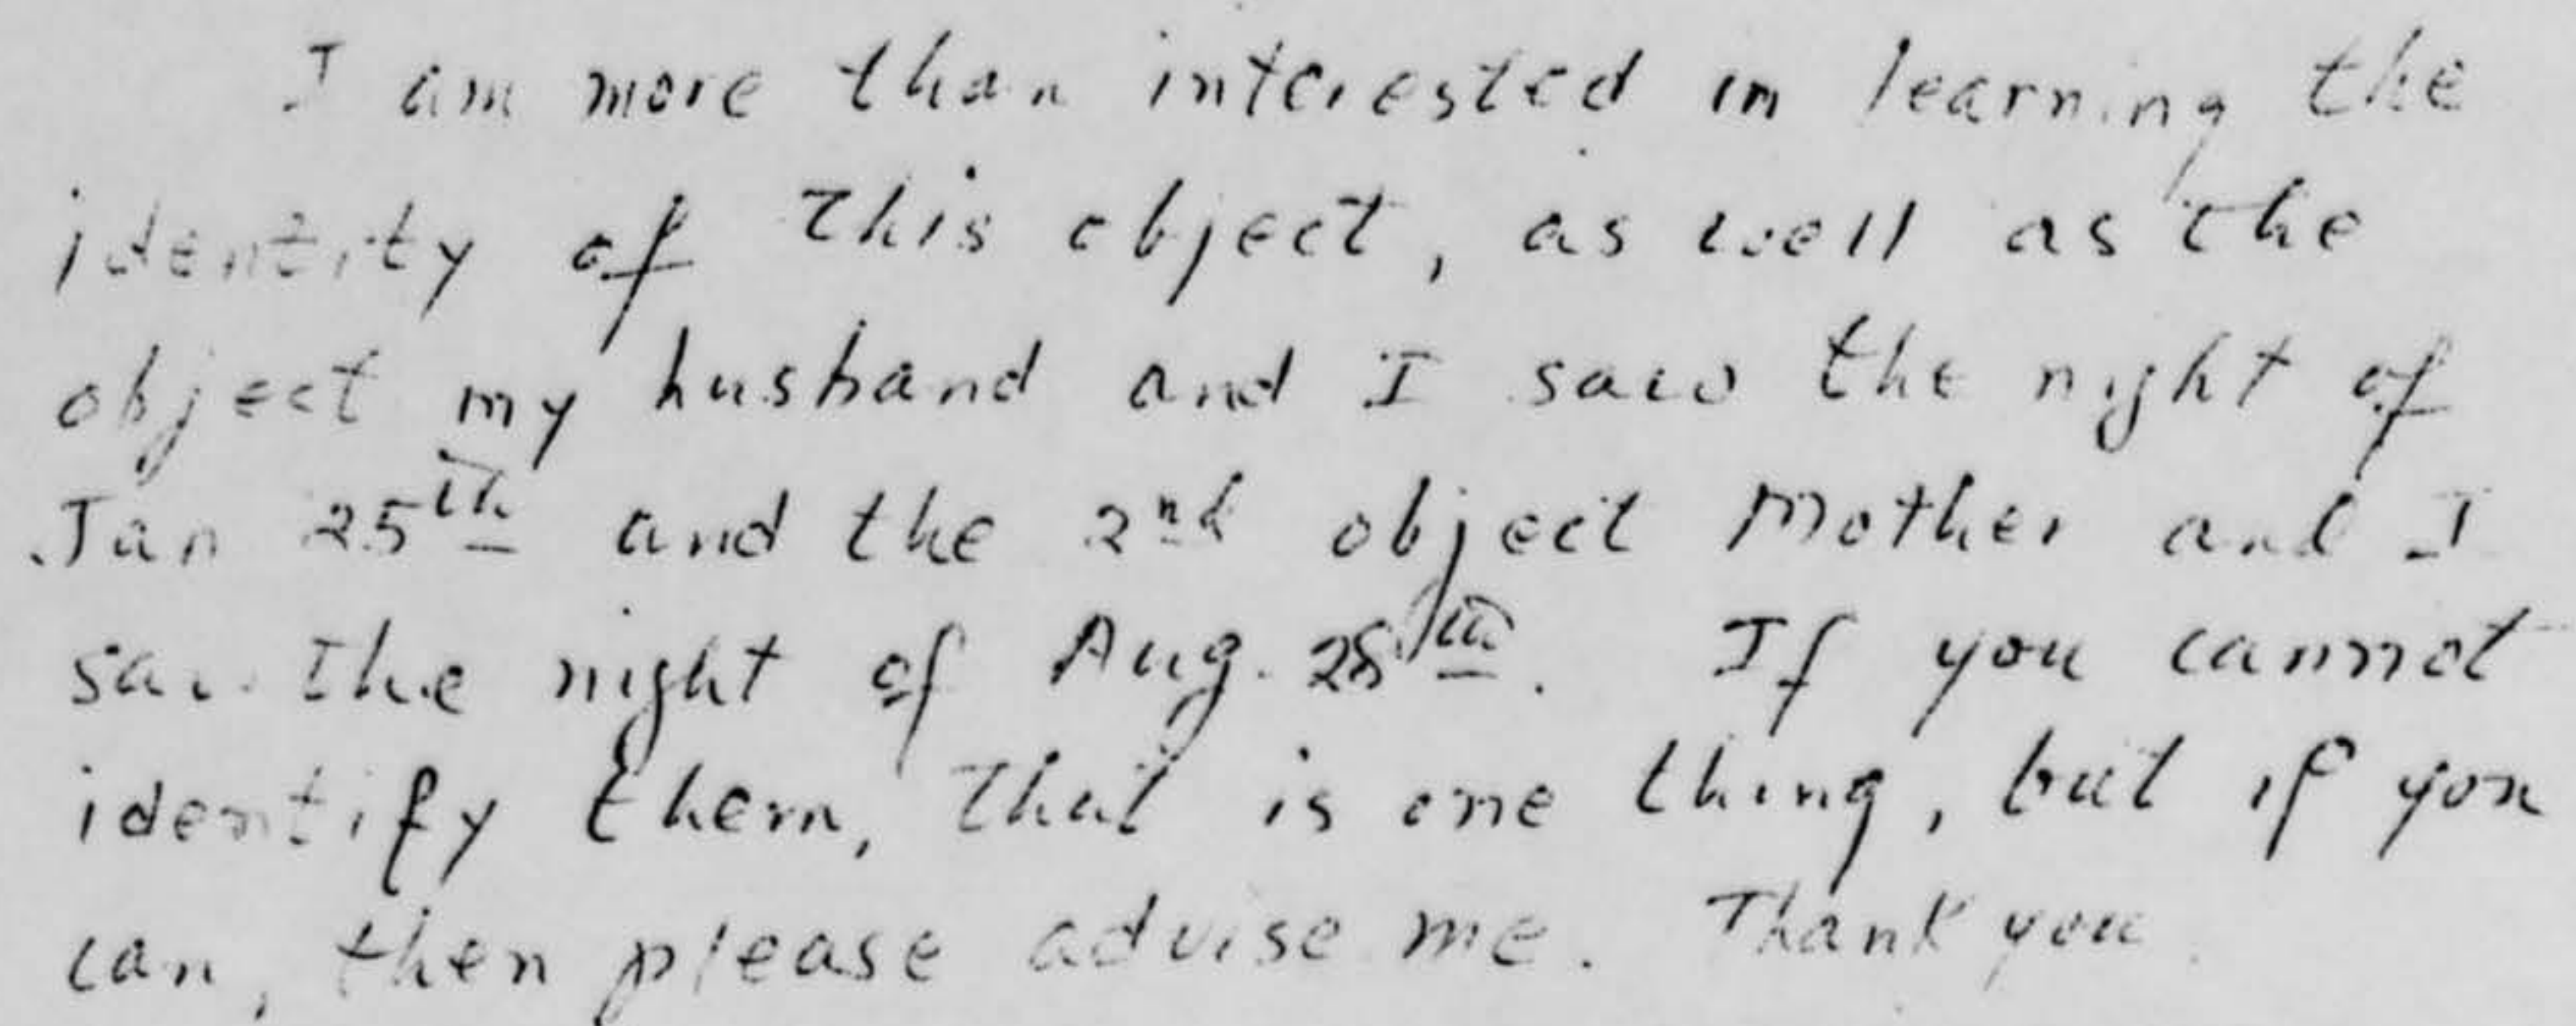 I am more than interested in learning the
identity of this object, as well as the
object my husband and I saw the night of
Jan 25th and the 2nd object Mother and I
saw the night of Aug. 28th. If you cannot
identify them, that is one thing, but if you
can, then please advise me. Thank you.